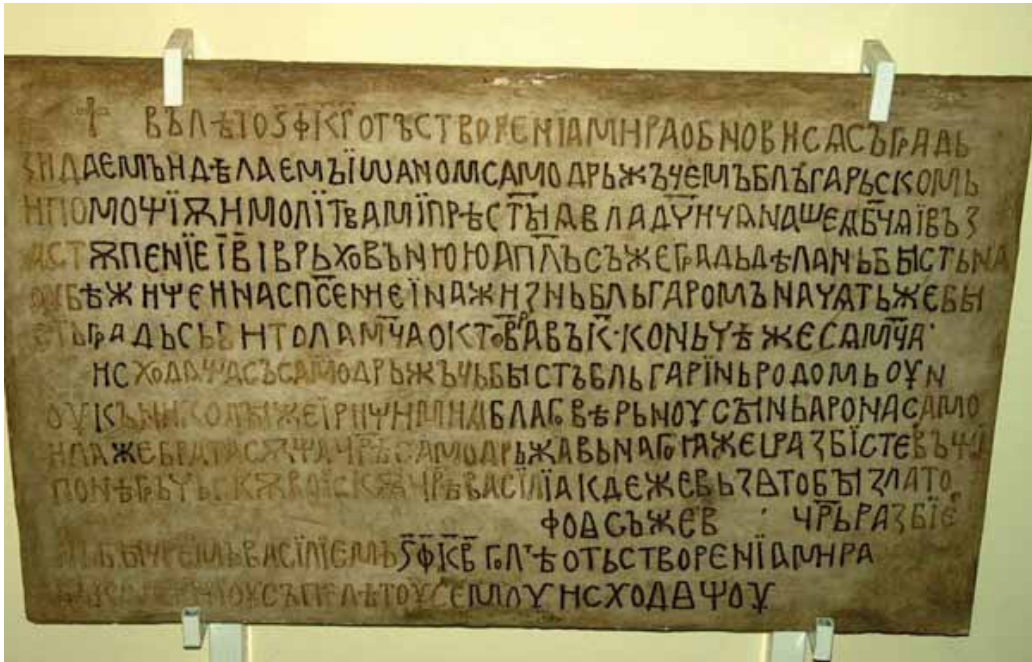 ☩ ВЪЛѢТОЅ҃Ф҃К҃Г҃ОТЪСТВОРЕНІАМИРАОБНОВИСѦСЪГРАДЬ
ЗИДАЕМЪИДѢЛАЕМЪЇѠАНОМСАМОДРЬЖЪЧЕМЪБЛЪГАРЬСКОМЬ
ИПОМОЩІѪИМОЛІТВАМІПРѢСТ҃ЫѦВЛАДЧ҃ИЧѦНАШЕѦБ҃ЧѦЇВЪЗ
ѦСТѪПЕНІЕІ҃В҃ІВРЬХОВЪНЮЮАП҃ЛЪСЪЖЕГРАДЬДѢЛАНЬББЫСТЬНА
ОУБѢЖИЩЕИНАСПС҃ЕНИЕЇНАЖИЗНЬБЛЬГАРОМЪНАЧѦТЬЖЕБЫ
СТЬГРАДЬСЬБИТОЛѦМ҃ЧАОКТОВРАВЪК҃·КОНЬЧѢЖЕСѦМ҃ЧА·
ИСХОДѦЩАСЪСАМОДРЬЖЪЧЬБЫСТЪБЛЬГАРЇНЬРОДОМЬОУН
ОУКЪНИКОЛЫЖЕЇРИѰИМИѦБЛАГОВѢРЬНОУСЫНЬАРОНАСАМО
ИЛАЖЕБРАТАСѪЩАЧ҃РѢСАМОДРЬЖАВЬНАГОꙖЖЕІРАЗБЇСТЕВЪЩІ
ПОНѢГРЬЧЬСКѪВОІСКѪЧ҃РѢВАСІЛІАКДЕЖЕВЬЗѦТОБЫЗЛАТО
ФОѦСЪЖЕВ · Ч҃РЬРАЗБІЕ
БЫЧ҃РЕМЪВАСІЛІЕМЪЅ҃Ф҃К҃В҃ГОЛѢОТЬСТВОРЕНЇѦМИРА
ЛѢТОУСЕМОУИСХОДѦЩОУ